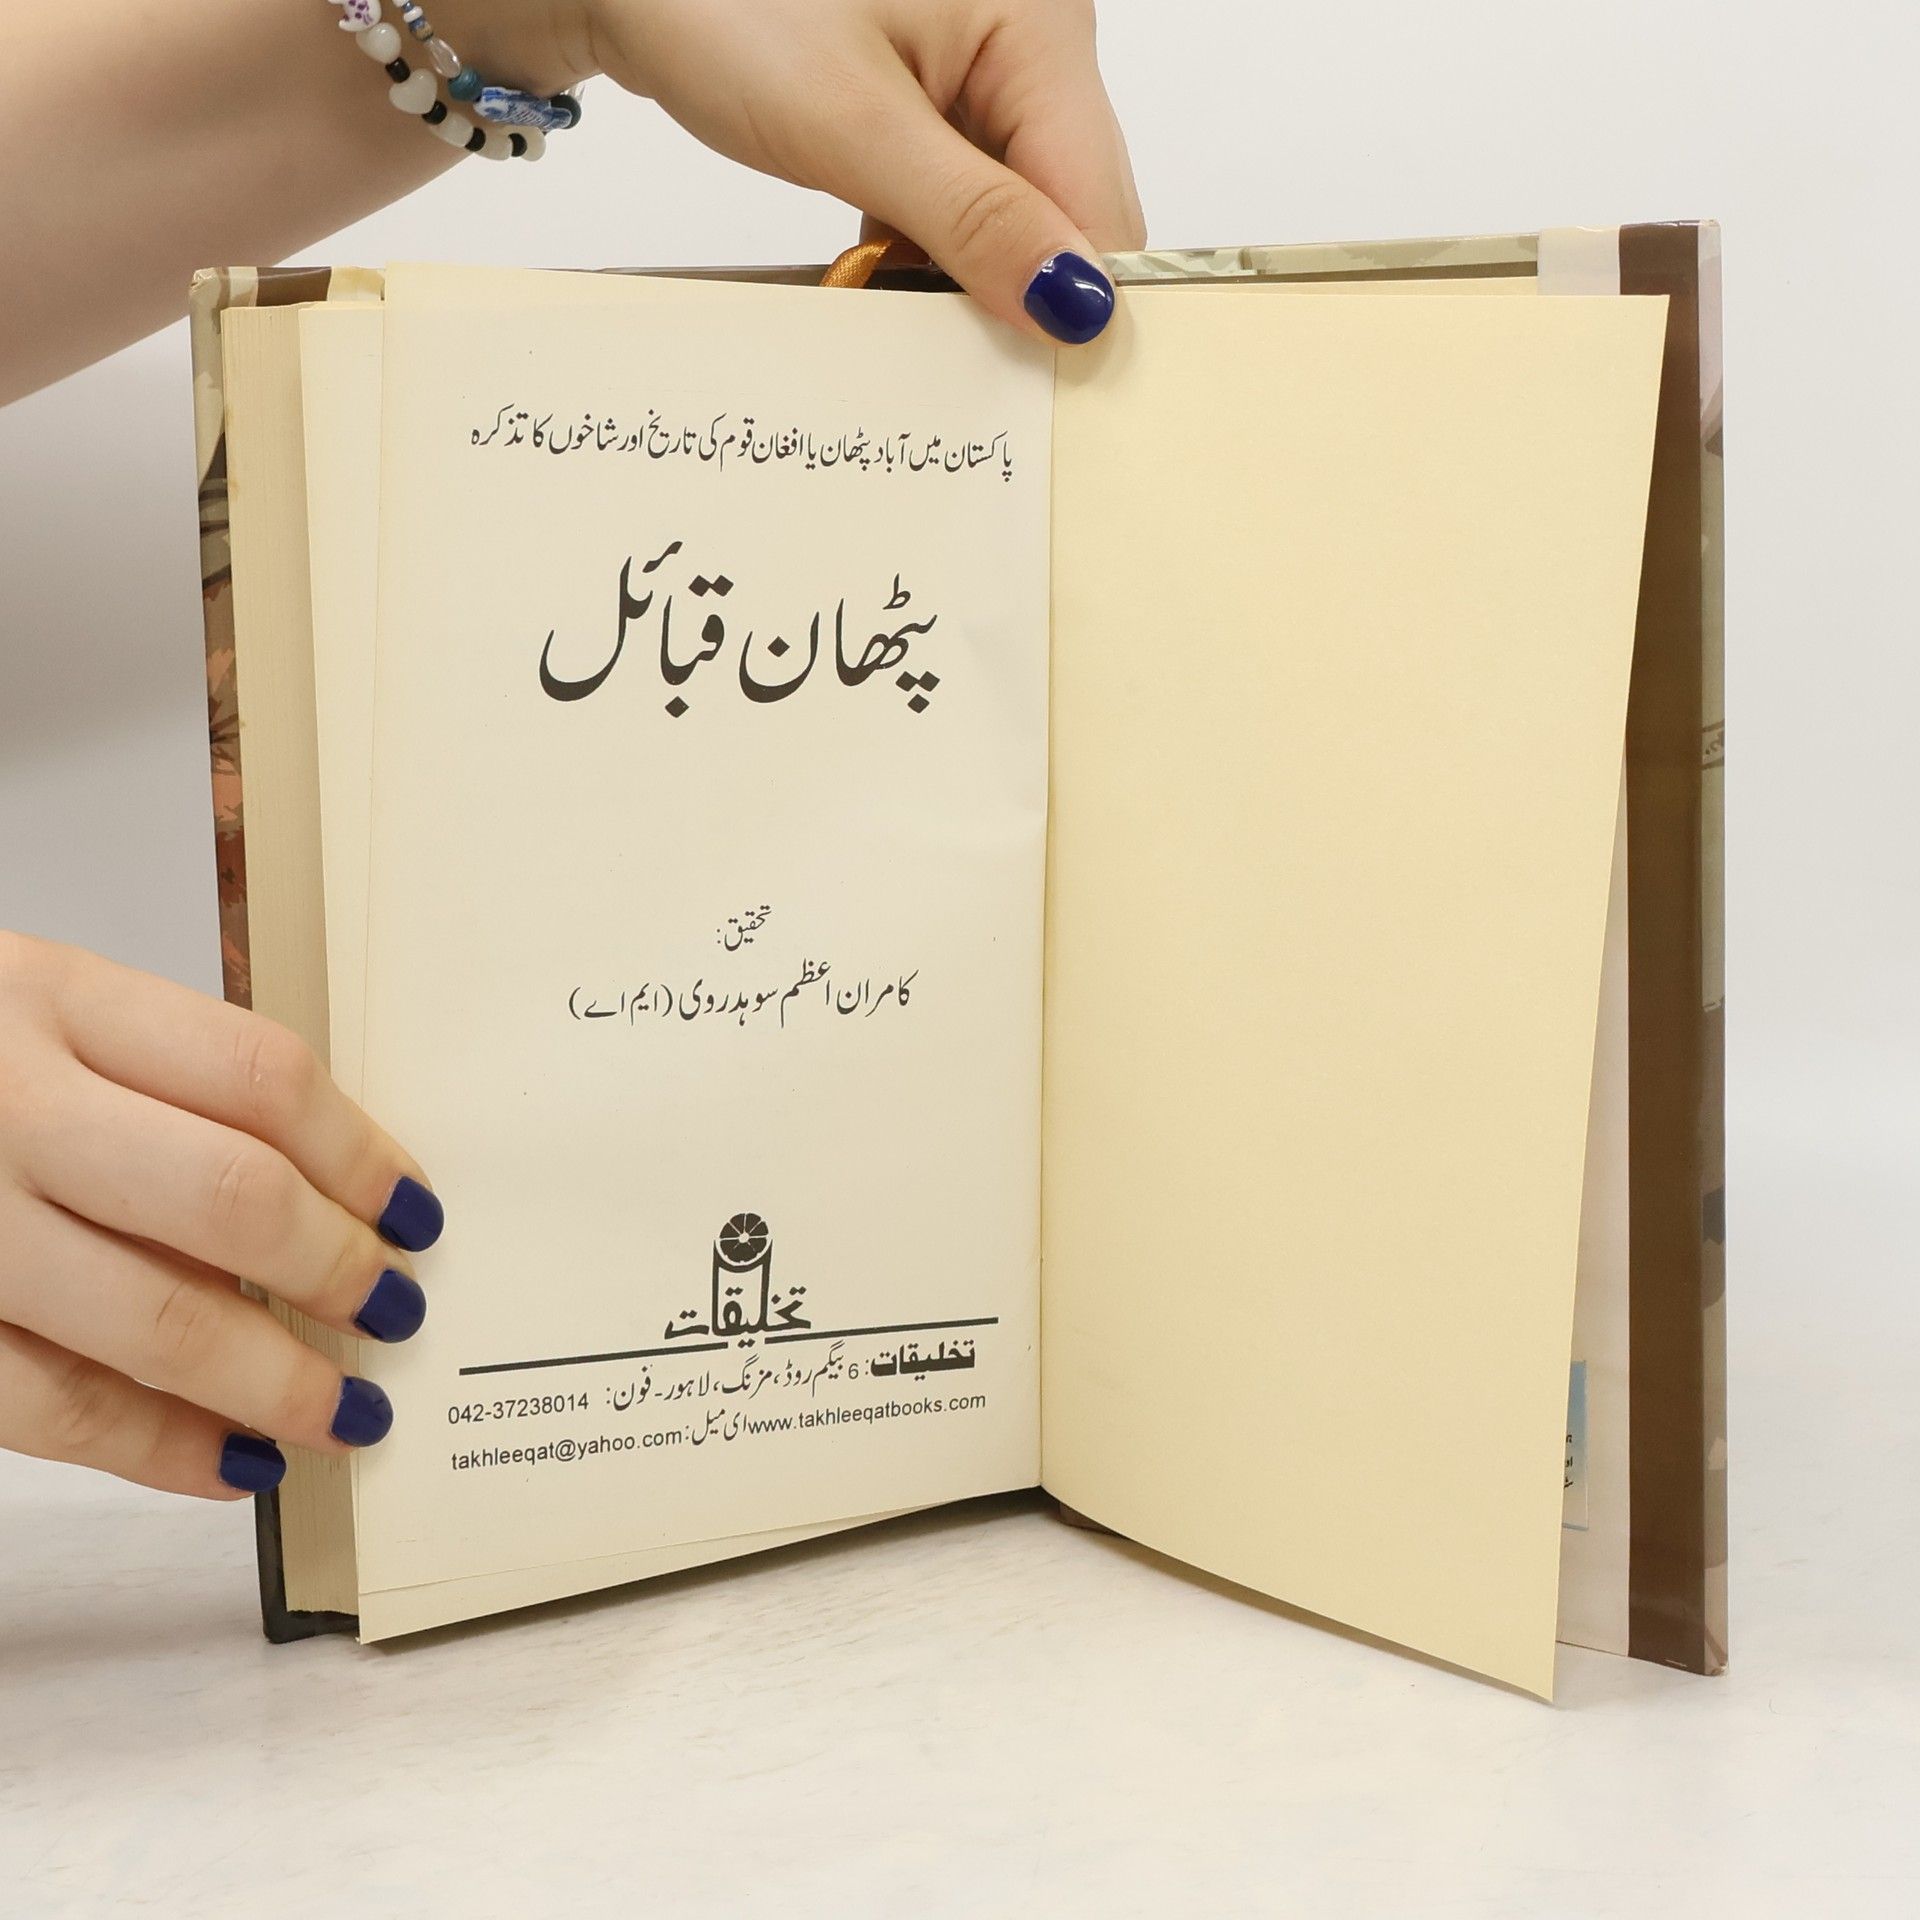 پاکستان میں آباد پٹھان یا افغان قوم کی تاریخ اور شاخوں کا تذکرہ
پٹھان قبائل
تحقیق:
کامران اعظم سوہدروی (ایم اے)
تخلیقات
تخلیقات: 6 بیگم روڈ، مزنگ، لاہور۔ فون: 042-37238014
www.takhleeqatbooks.com ای میل: takhleeqat@yahoo.com